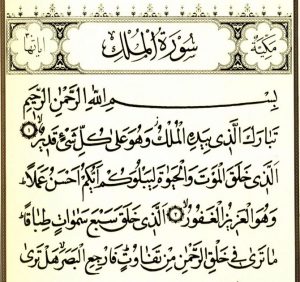 مكية سورة الملك آياتها
بسم الله الرحمن الرحيم
تبارك الذي بيده الملك وهو على كل شيء قدير ١
الذي خلق الموت والحيوة ليبلوكم أيكم أحسن عملا
وهو العزيز الغفور ٢ الذي خلق سبع سموات طباقا
ما ترى في خلق الرحمن من تفاوت فارجع البصر هل ترى